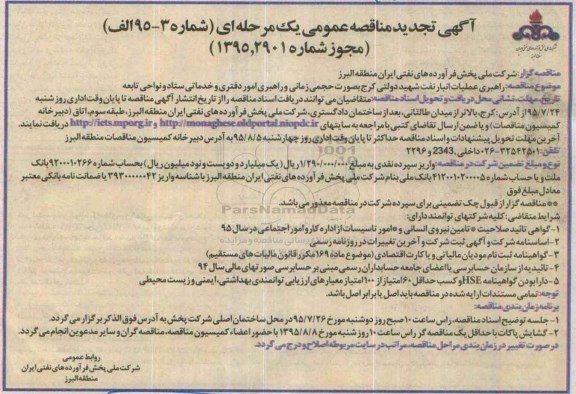 آگهی تجدید مناقصه عمومی یک مرحله ای (شماره ۳-۹۵ الف)
(مجوز شماره ۱۳۹۵،۲۹۰۱)
مناقصه گزار: شرکت ملی پخش فرآورده های نفتی ایران منطقه البرز
موضوع مناقصه: راهبری عملیات انبار نفت شهید دولتی کرج بصورت حجمی زمانی و راهبری امور دفتری و خدماتی ستاد و نواحی تابعه
تاریخ، مهلت، نشانی محل دریافت و تحویل اسناد مناقصه: متقاضیان می توانند دریافت اسناد مناقصه را از تاریخ انتشار آگهی مناقصه تا پایان وقت اداری روز شنبه
۹۵/۷/۲۴ از آدرس: کرج، بالاتر از میدان طالقانی، بعد از ساختمان دادگستری، شرکت ملی پخش فرآورده های نفتی ایران منطقه البرز، طبقه سوم، اتاق (دبیرخانه
کمیسیون مناقصات) و یا ضمن ارسال تقاضای کتبی با مراجعه به سایتهای http://iets.mporg.ir و http://monaghese.oldportal.niopdc.ir دریافت نمایند.
آخرین مهلت تحویل پیشنهادات و اسناد مناقصه حداکثر تا پایان وقت اداری روز چهارشنبه ۹۵/۸/۵ به آدرس دبیرخانه کمیسیون مناقصات منطقه البرز
تلفن: ۳۲۵۴۲۵۰۱-۰۲۶ داخلی، 2343 و ۲۲۹۶
نوع و مبلغ تضمین شرکت در مناقصه: واریز سپرده نقدی به مبلغ ۱/۲۹۰/۰۰۰/۰۰۰ ریال (یک میلیارد و دویست و نود میلیون ریال) بحساب شماره ۹۲۰۰۱۰۲۶۶ بانک
ملت و یا حساب شماره ۴۱۲۰۰۱۰۲۰۰۰۵ بانک ملی بنام شرکت ملی پخش فرآورده های نفتی ایران منطقه البرز با شناسه واریز ۳۹۳۰۰۰۰۰۰۴۲ یا ضمانت نامه بانکی معتبر
معادل مبلغ فوق
** مناقصه گزار از قبول چک تضمینی برای سپرده شرکت در مناقصه معذور می باشد.
شرایط متقاضی: کلیه شرکتهای توانمند دارای:
۱-گواهی تائید صلاحیت * تامین نیروی انسانی و * امور تاسیسات از اداره کار و امور اجتماعی در سال ۹۵
۲-اساسنامه شرکت و آگهی ثبت شرکت و آخرین تغییرات در روزنامه رسمی
۳-گواهینامه ثبت نام مودیان مالیاتی و یا کارت اقتصادی (موضوع ماده ۱۶۹ مکرر قانون مالیات های مستقیم)
۴- تائیدیه از سازمان حسابرسی یا اعضای جامعه حسابداران رسمی مبنی بر حسابرسی صورتهای مالی سال ۹۴
۵-دارا بودن گواهینامه HSE و کسب حداقل ۶۰ امتیاز از ۱۰۰ امتیاز معیار های ارزیابی توانمندی بهداشتی، ایمنی و زیست محیطی
توجه: تمامی مستندات ارایه شده در مناقصه باید اصل یا برابر اصل باشد.
برنامه زمان بندی مناقصه:
۱- جلسه توضیح اسناد مناقصه، راس ساعت ۱۰ صبح روز دوشنبه مورخ ۹۵/۷/۲۶ در محل ساختمان اصلی شرکت پخش به آدرس فوق الذکر برگزار می گردد.
۲- گشایش پاکات با حداقل یک مناقصه گر راس ساعت ۱۰ روز شنبه مورخ ۱۳۹۵/۸/۸ با حضور اعضاء کمیسیون مناقصه، مناقصه گران و سایر مدعوین انجام می گردد.
در صورت تغییر در زمان بندی مراحل مناقصه، مراتب در سایت مربوطه اصلاح و درج می گردد.
روابط عمومی
شرکت ملی پخش فرآورده های نفتی ایران
منطقه البرز
ParsNamadData